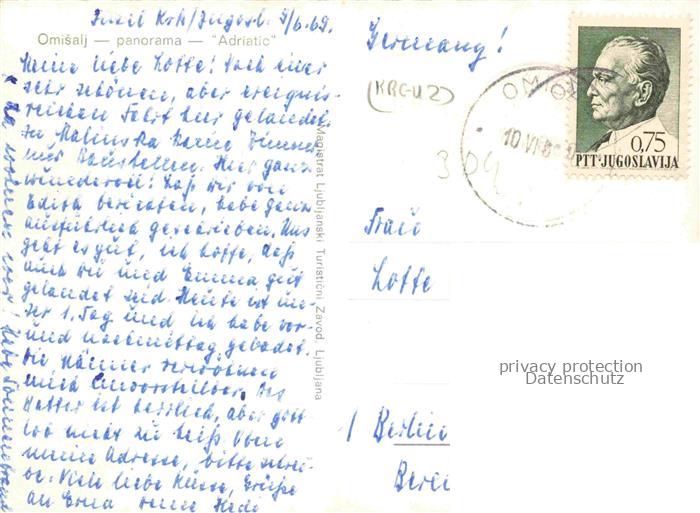 Insel Krk/Jugosl. 9/6.69.
Omišalj — panorama — "Adriatic"
Meine liebe Lotte! Nach einer
sehr schönen, aber ereignis-
reichen Fahrt hier gelandet.
In Malinska keine Zimmer
nur Baustellen. Hier ganz
wundervoll! Daß wir von
Edith berichten, habe ganz
ausführlich geschrieben. Uns
geht es gut, ich hoffe, daß
auch Du und Emma gut
gelandet seid. Heute ist un-
ser 1. Tag und ich habe vor-
und nachmittag gebadet.
Die Männer verwöhnen
mich
Wetter ist herrlich, aber gott-
lob nicht zu heiß. Oben
meine Adresse, bitte schrei-
be. Viele liebe Küsse, Grüße
an Erna Deine Hedi
Magistrat Ljubljanski Turistični Zavod, Ljubljana
Germany!
(KREUZ)
OMIŠ
10 VI 6
304
0,75
PTT·JUGOSLAVIJA
Frau
Lotte
1 Berlin
Berli
privacy protection
Datenschutz